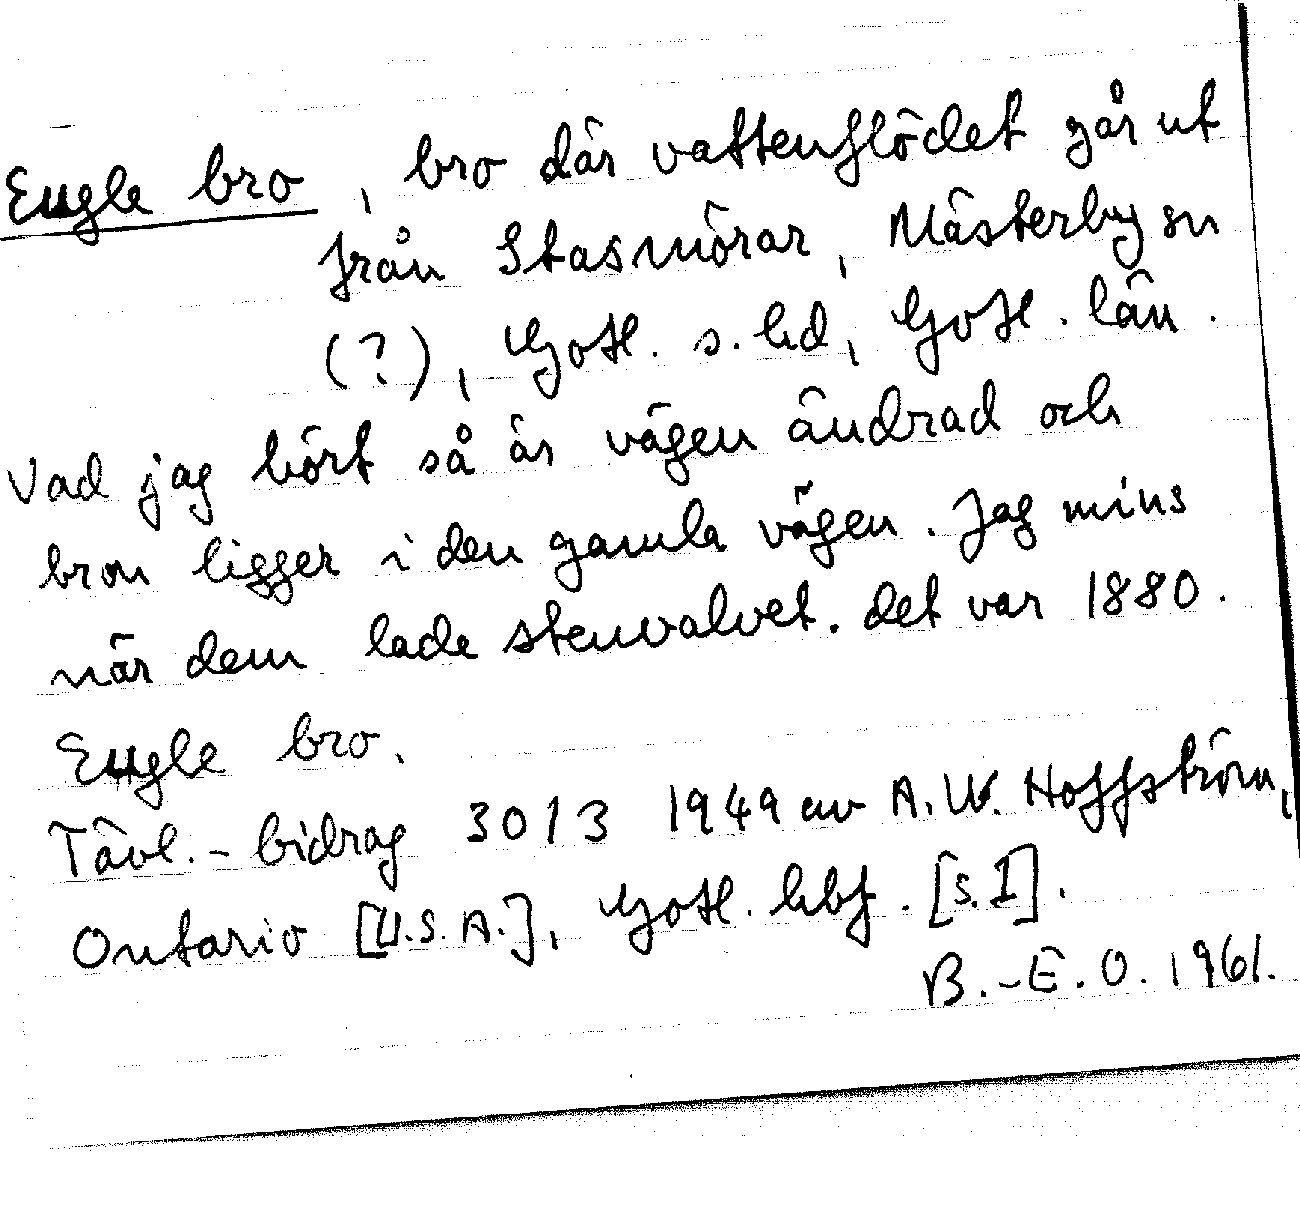 Eugle bro, bro där vattenflödet går ut
från Stasmörar, Mästerby sn
(?), Gotl. s. hd, Gotl. län.
Vad jag hört så är vägen ändrad och
bron ligger i den gamla vägen. Jag mins
när dem lade stenvalvet. det var 1880.
Eugle bro.
Tävl.-bidrag 3013 1949 av A.W. Hoffström,
Ontario [U.S.A.], Gotl. hbf. [S.I].
B.-E.O. 1961.